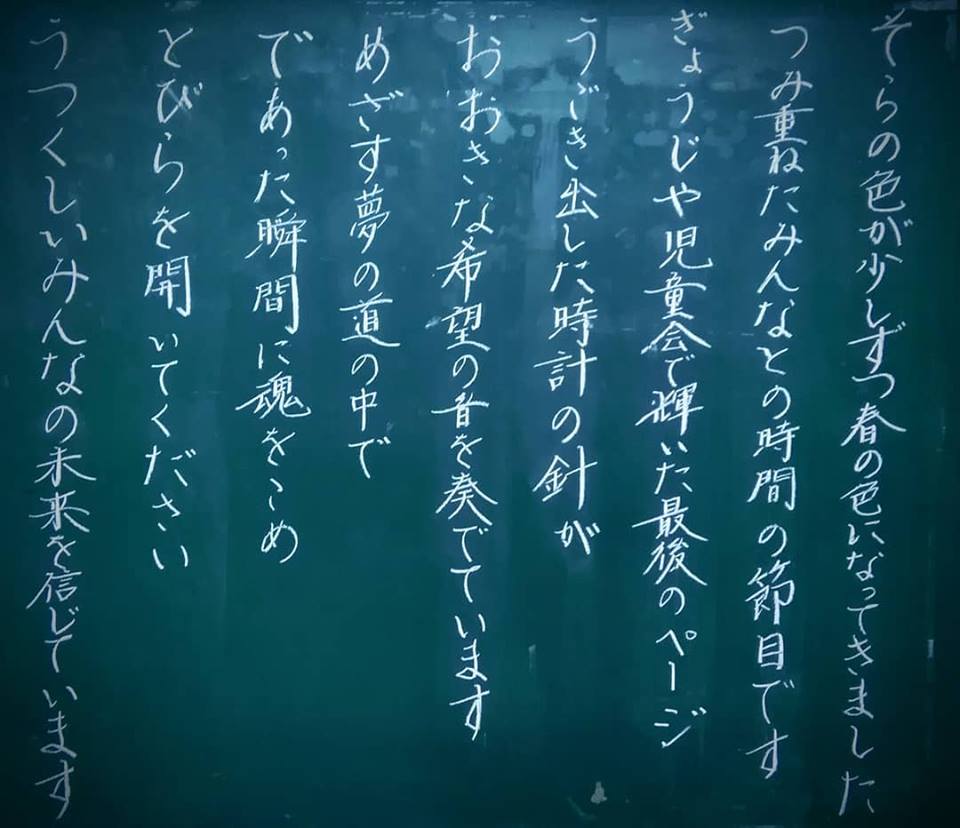 そらの色が少しずつ春の色になってきました
つみ重ねたみんなとの時間の節目です
ぎょうじや児童会で輝いた最後のページ
うごき出した時計の針が
おおきな希望の音を奏でています
めざす夢の道の中で
であった瞬間に魂をこめ
とびらを開いてください
うつくしいみんなの未来を信じています